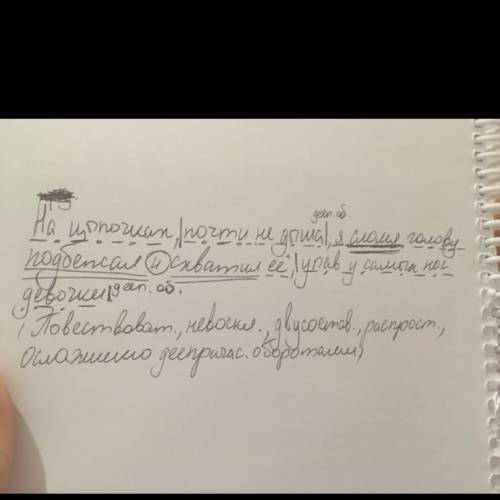 дееп. об.
На цыпочках, |почти не дыша|, я сломя голову
подбежал и схватил её, |упав у самых ног
девочки| дееп. об.
(Повествоват., невоскл., двусостав., распрост.,
осложнено деепричас. оборотами)